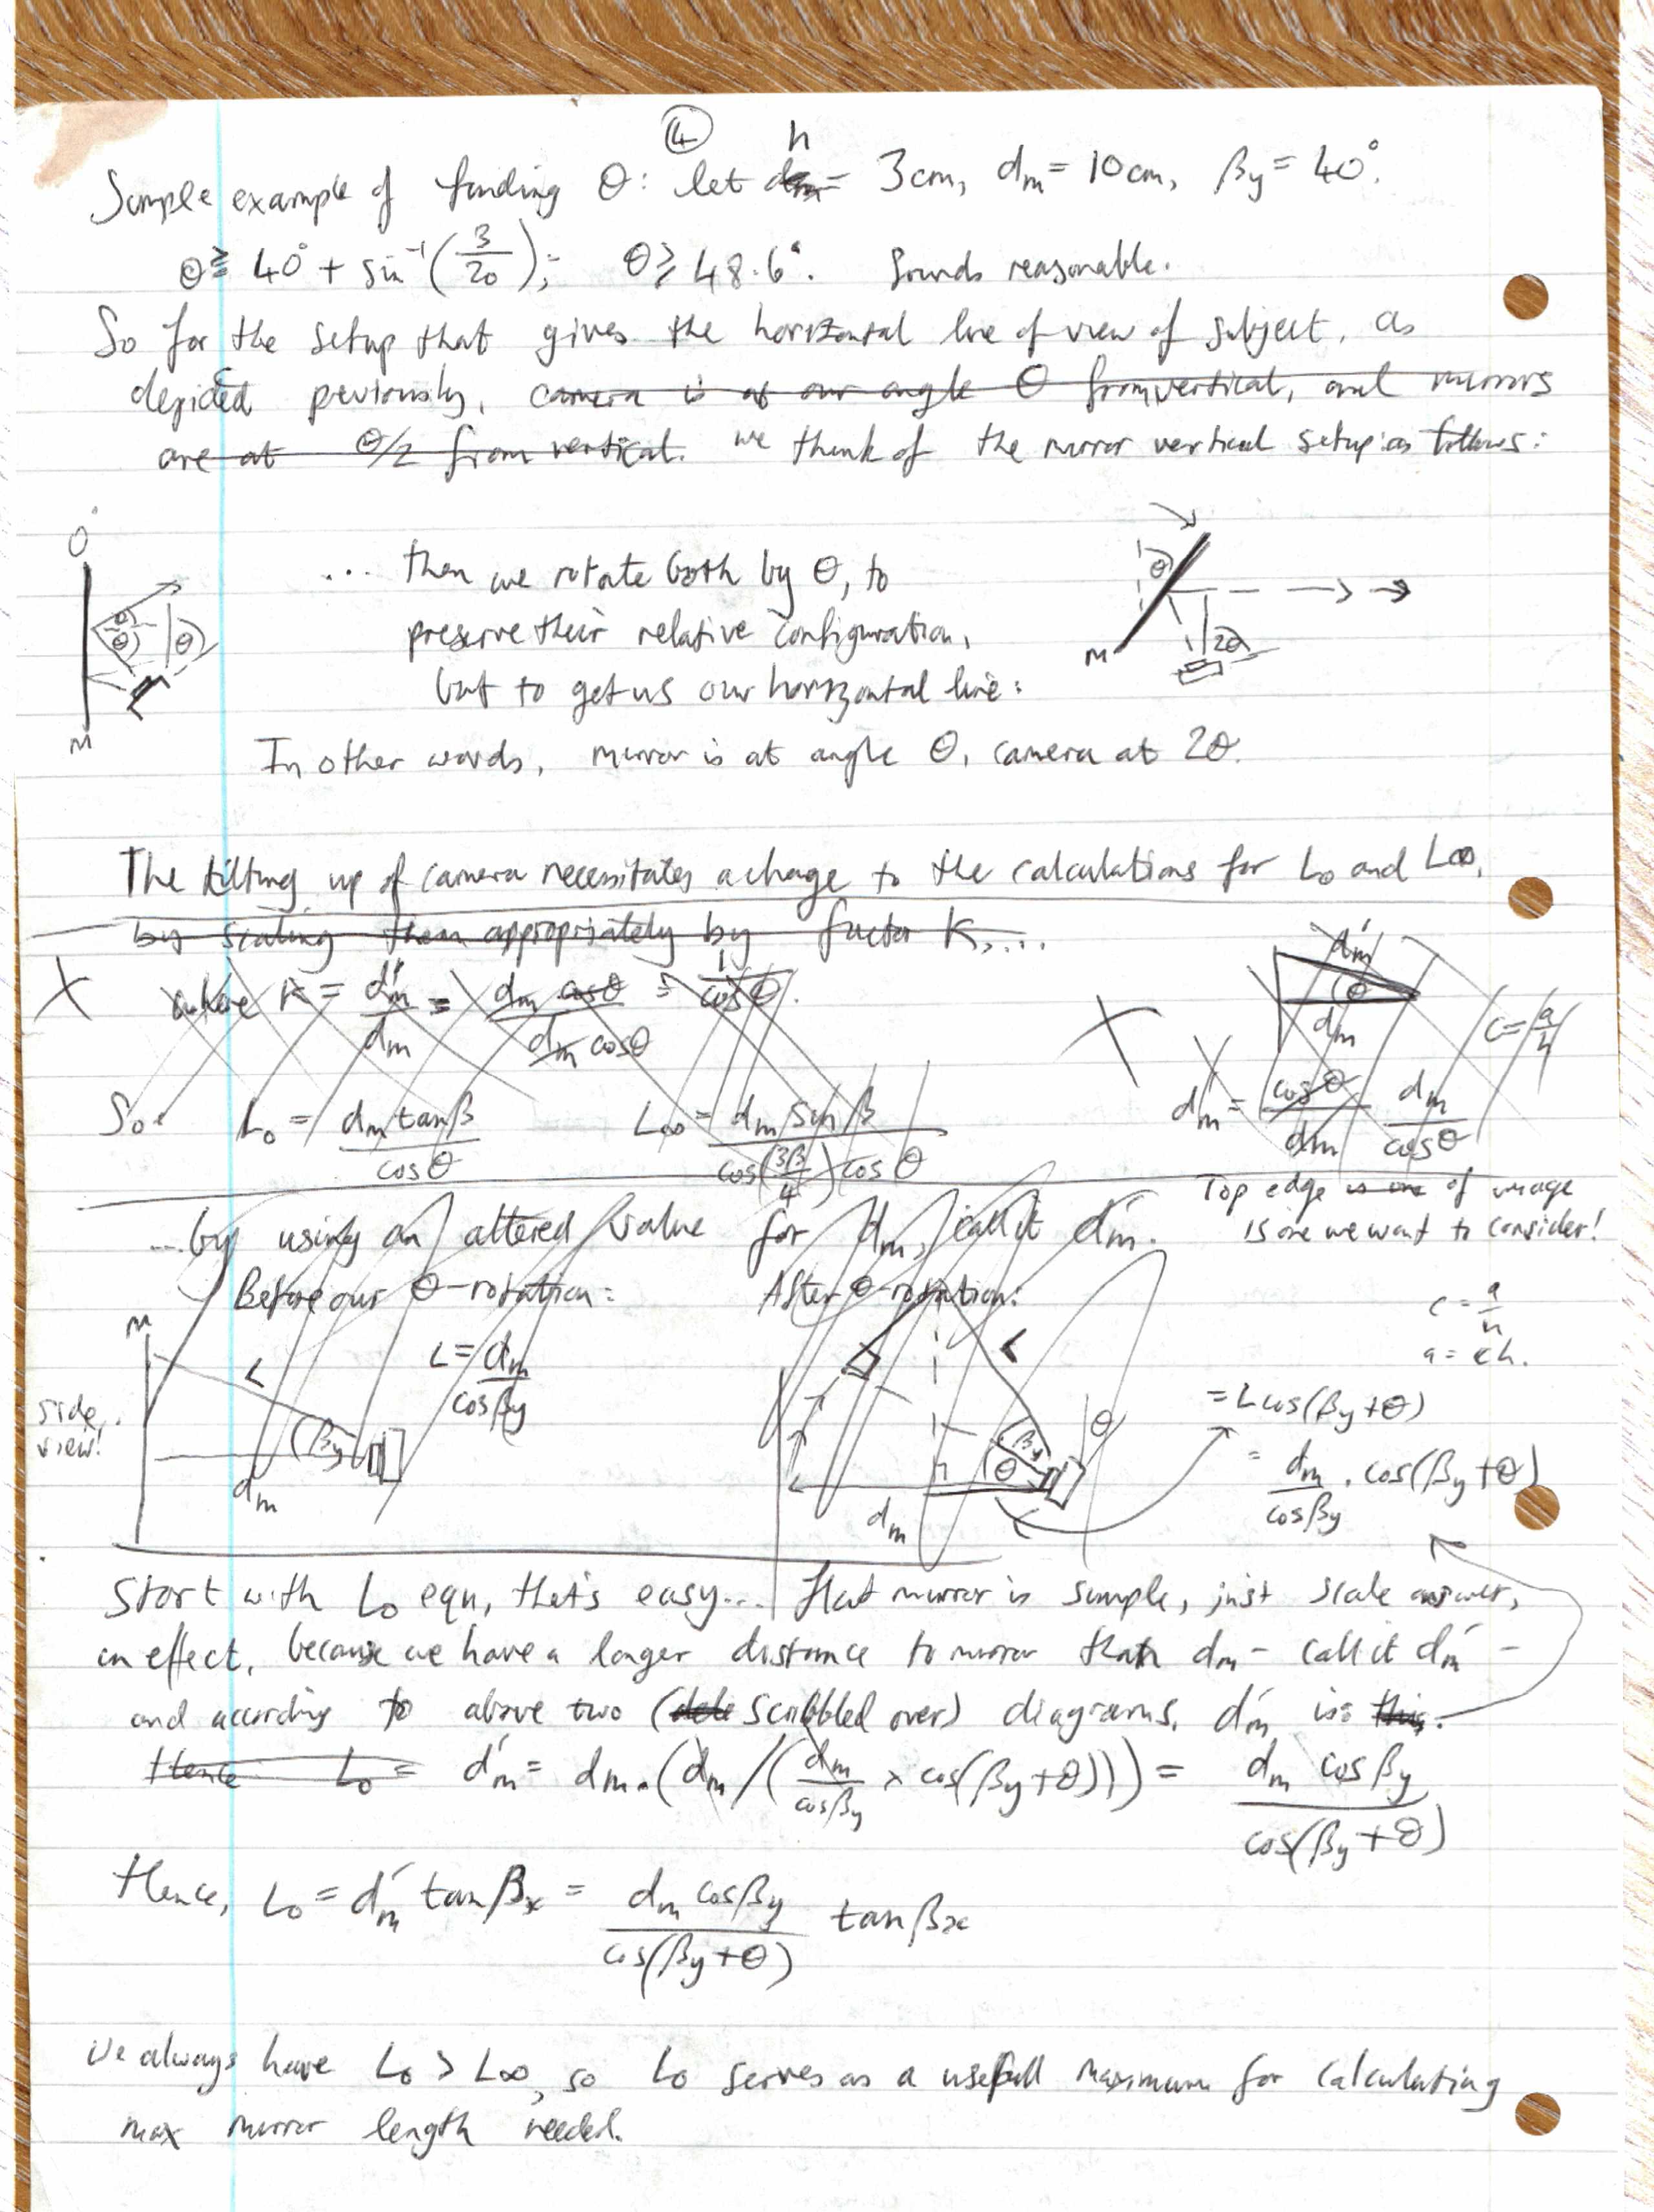 ④
Simple example of finding θ: let d̶m̶ h = 3cm, dm = 10cm, βy = 40°.
θ ≥ 40° + sin⁻¹(3/20); θ ≥ 48.6°. Sounds reasonable.
So for the setup that gives the horizontal line of view of subject, as
depicted previously, camera is at our angle θ from vertical, and mirrors
are at θ/2 from vertical. we think of the mirror vertical setup as follows:
O
θ
θ
θ
M
... then we rotate both by θ, to
preserve their relative configuration,
but to get us our horizontal line:
θ
M
2θ
In other words, mirror is at angle θ, camera at 2θ.
The tilting up of camera necessitates a change to the calculations for L₀ and L∞,
by scaling them appropriately by factor K,...
where K = d'm/dm = dm cosθ/dm cosθ = 1/cosθ.
d'm
θ
dm
c = a/h
d'm = cosθ/dm dm/cosθ
So: L₀ = dm tanβ/cosθ L∞ = dm sinβ/cos(3β/4) cosθ
Top edge is one of image
is one we want to consider!
...by using an altered value for dm, call it d'm.
Before our θ-rotation: After θ-rotation:
M
L
L = dm/cosβy
side view!
βy
dm
L
βy
θ
θ
dm
c = a/h
a = ch.
= L cos(βy+θ)
= dm/cosβy . cos(βy+θ)
Start with L₀ eqn, that's easy... flat mirror is simple, just scale answer,
in effect, because we have a longer distance to mirror than dm - call it d'm -
and according to above two (scribbled over) diagrams, d'm is: this.
Hence L₀ = d'm = dm.(dm/(dm/cosβy × cos(βy+θ))) = dm cosβy/cos(βy+θ)
Hence, L₀ = d'm tanβx = dm cosβy/cos(βy+θ) tanβx
We always have L₀ > L∞, so L₀ serves as a usefull maximum for calculating
max mirror length needed.